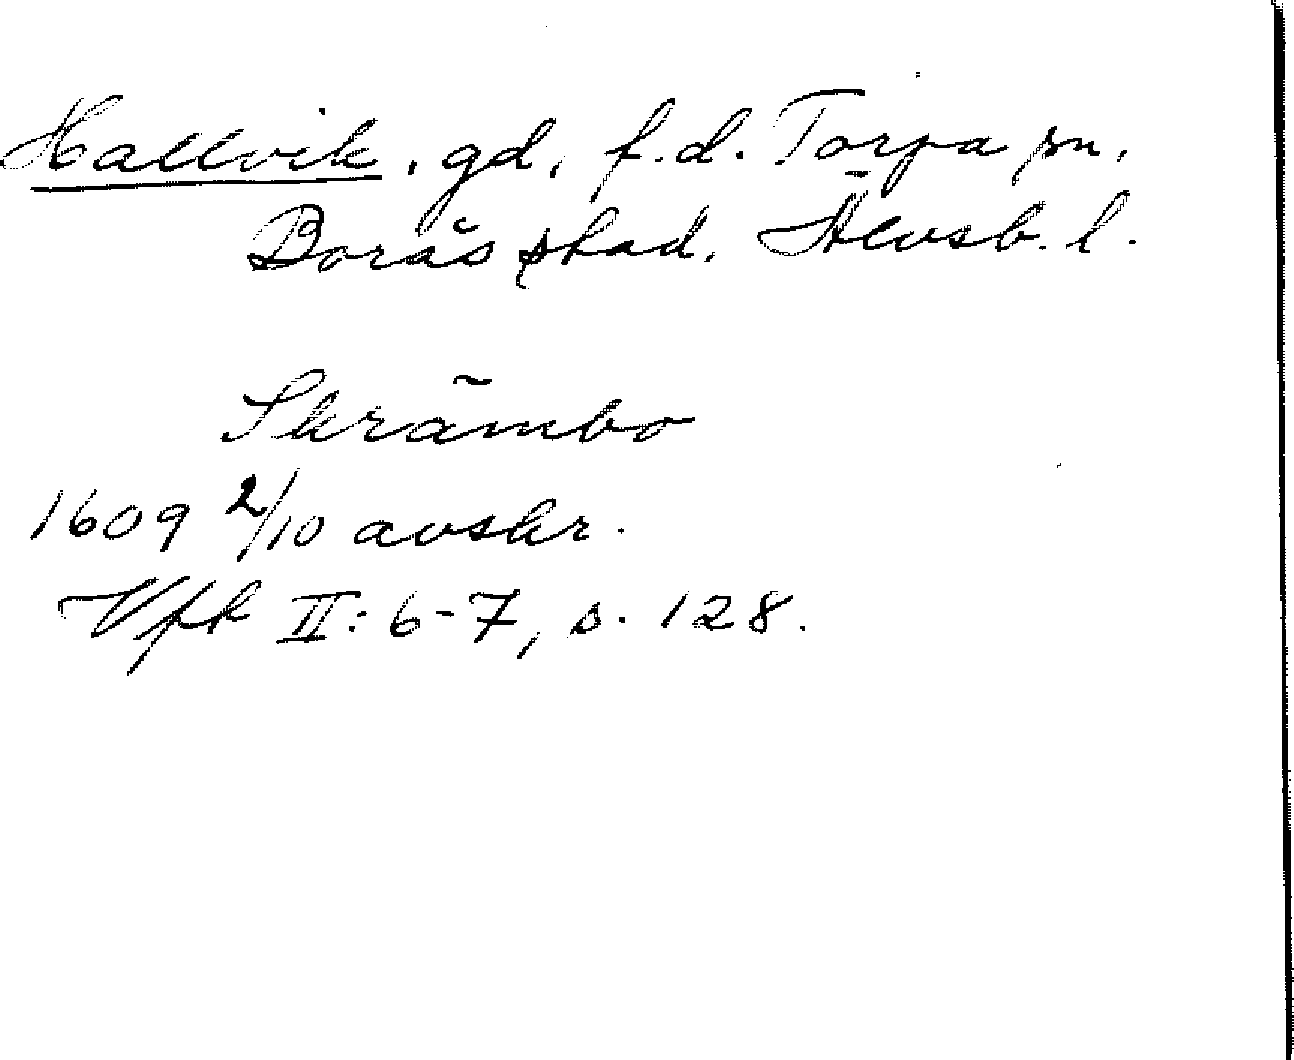 Hallvik, gd, f.d. Torpa sn,
Borås stad, Älvsb. l.
Skrämbo
1609 2/10 avskr.
Vfk II: 6-7, s. 128.